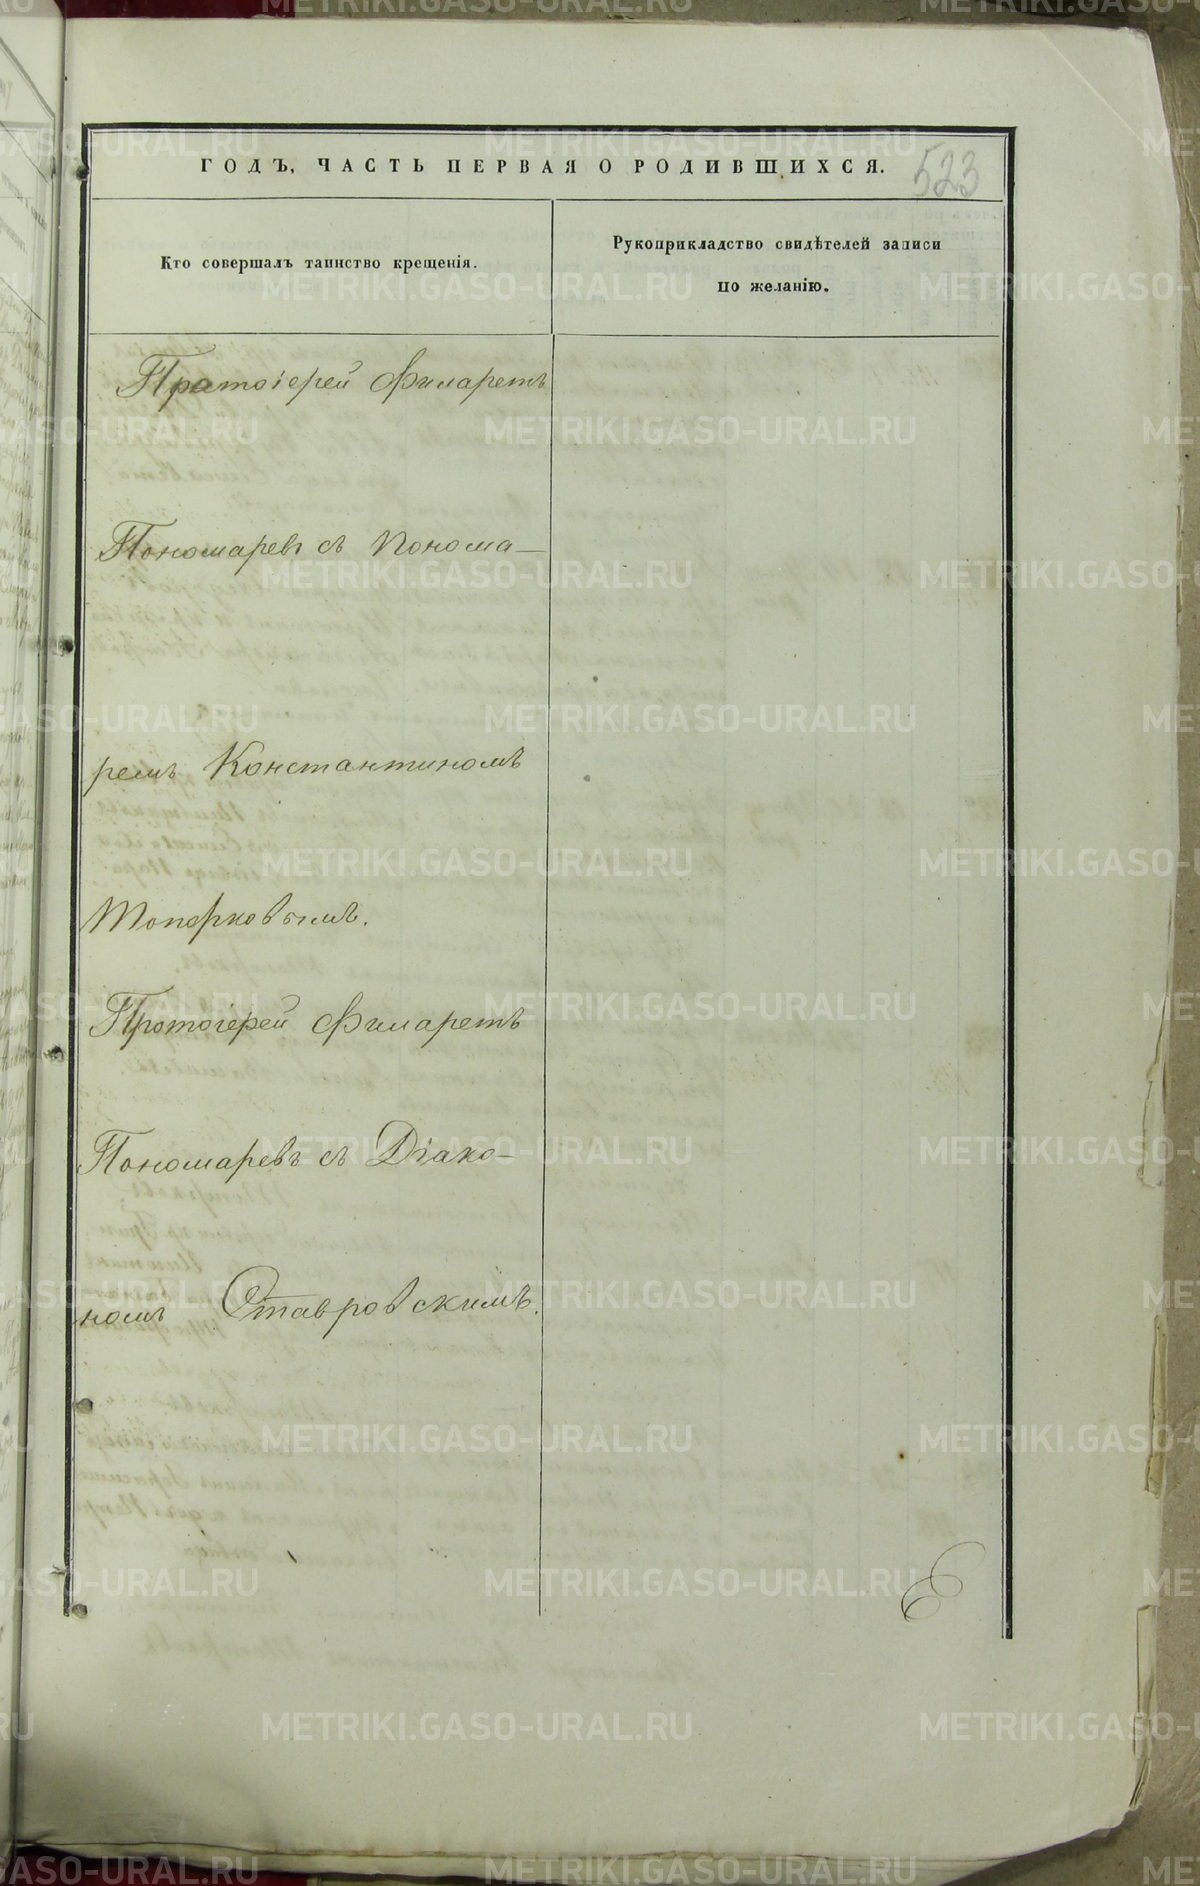 ГОДЪ, ЧАСТЬ ПЕРВАЯ О РОДИВШИХСЯ.
523
Кто совершалъ таинство крещенія.
Рукоприкладство свидѣтелей записи
по желанію.
Протоіерей Филаретъ
Пономаревъ съ Понома-
ремъ Константиномъ
Топорковымъ.
Протоіерей Филаретъ
Пономаревъ съ Діако-
номъ Ставровскимъ.
METRIKI.GASO-URAL.RU